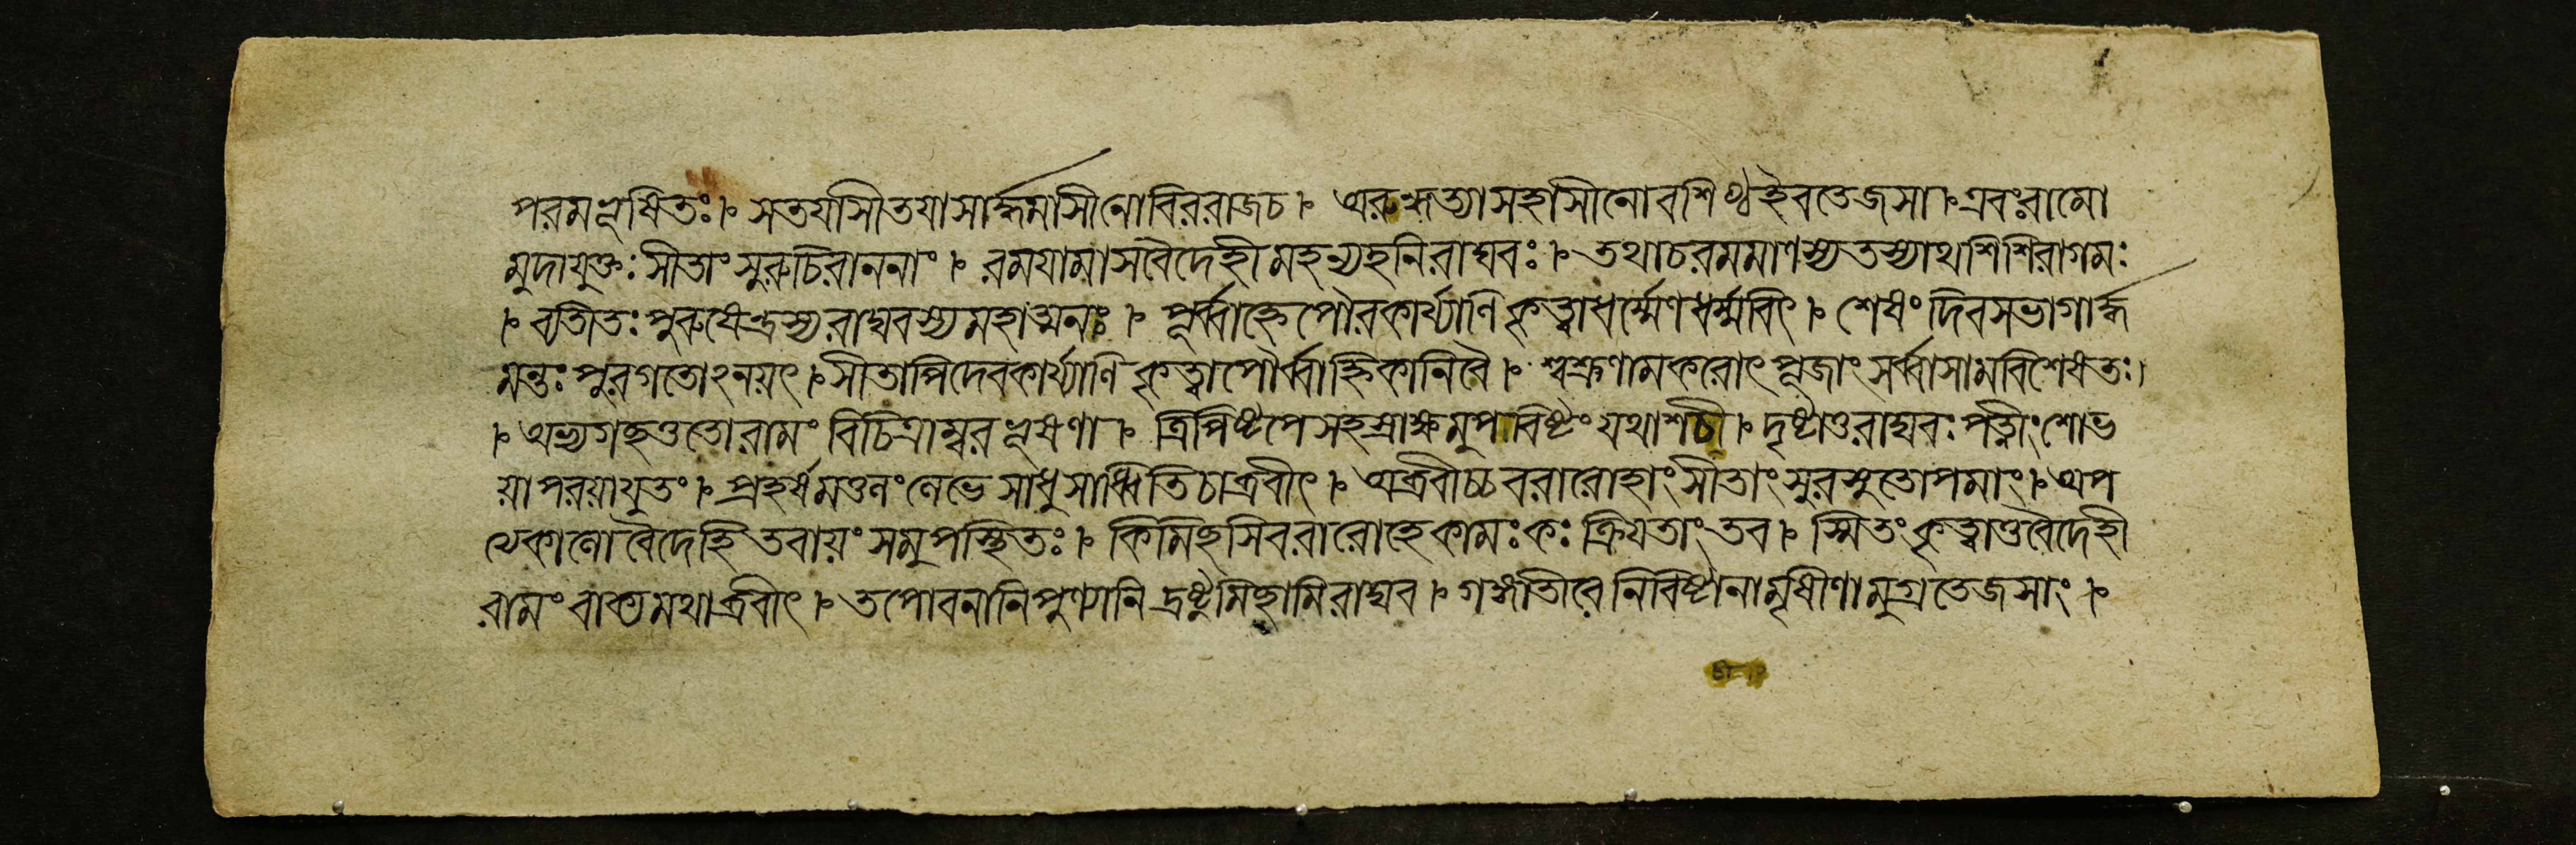 পরমভূষিতঃ৷৹ সতয়াসীতয়াসার্দ্ধমাসীনোবিররাজচ৷৹ অরুন্ধত্যাসহাসীনোবশিষ্ঠইবতেজসা৷৹এবংরামো
মুদাযুক্তঃসীতাংসুরুচিরাননাং৷৹ রময়ামাসবৈদেহীমহন্যহনিরাঘবঃ৷৹ তথাচরমমাণস্যতস্যাথশিশিরাগমঃ
৷৹ ব্যতীতঃপুরুষেন্দ্রস্যরাঘবস্যমহাত্মনঃ৷৹ পূর্ব্বাহ্ণেপৌরকার্য্যাণিকৃত্বাধর্ম্মেণধর্ম্মবিৎ৷৹ শেষংদিবসভাগার্দ্ধ
মন্তঃপুরগতোঽনয়ৎ৷৹সীতাপিদেবকার্য্যাণিকৃত্বাপৌর্ব্বাহ্ণিকানিবৈ৷৹ শ্বশ্রূণামকরোৎপূজাংসর্ব্বাসামবিশেষতঃ
৷৹ অভ্যগচ্ছত্ততোরামংবিচিত্রাম্বরভূষণা৷৹ ত্রিপিষ্টপেসহস্রাক্ষমুপবিষ্টংযথাশচী৷৹ দৃষ্ট্বাতুরাঘবঃপত্নীংশোভ
য়াপরয়াযুতং৷৹ প্রহর্ষমতুলংলেভেসাধুসাধ্বিতিচাব্রবীৎ৷৹ অব্রবীচ্চবরারোহাংসীতাংসুরসুতোপমাং৷৹অপ
ত্যেকালোবৈদেহিতবায়ংসমুপস্থিতঃ৷৹ কিমিচ্ছসিবরারোহেকামঃকঃক্রিয়তাংতব৷৹ স্মিতংকৃত্বাতুবৈদেহী
রামংবাক্যমথাব্রবীৎ৷৹ তপোবনানিপুণ্যানিদ্রষ্টুমিচ্ছামিরাঘব৷৹ গঙ্গাতীরেনিবিষ্টানামৃষীণামুগ্রতেজসাং৷৹